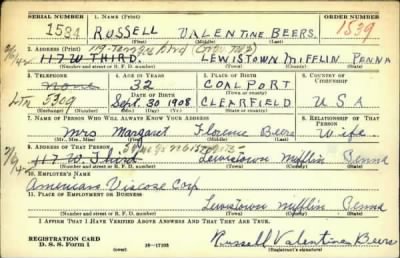 SERIAL NUMBER 1. NAME (Print) ORDER NUMBER
1534 RUSSELL VALENTINE BEERS. 1539
(First) (Middle) (Last)
2. ADDRESS (Print)
117 W THIRD. LEWISTOWN MIFFLIN PENNA
(Number and street or R. F. D. number) (Town) (County) (State)
3. TELEPHONE 4. AGE IN YEARS 5. PLACE OF BIRTH 6. COUNTRY OF CITIZENSHIP
none 32 COALPORT
DATE OF BIRTH (Town or county)
Sept. 30 1908 CLEARFIELD U S A
(Exchange) (Number) (Mo.) (Day) (Yr.) (State or country)
7. NAME OF PERSON WHO WILL ALWAYS KNOW YOUR ADDRESS 8. RELATIONSHIP OF THAT PERSON
Mrs Margaret Florence Beers Wife
(Mr., Mrs., Miss) (First) (Middle) (Last)
9. ADDRESS OF THAT PERSON
117 W Third Lewistown Mifflin Penna
(Number and street or R. F. D. number) (Town) (County) (State)
10. EMPLOYER'S NAME
American Viscose Corp
11. PLACE OF EMPLOYMENT OR BUSINESS
Lewistown Mifflin Penna
(Number and street or R. F. D. number) (Town) (County) (State)
I AFFIRM THAT I HAVE VERIFIED ABOVE ANSWERS AND THAT THEY ARE TRUE.
REGISTRATION CARD
D. S. S. Form 1 (over) 16—17105 Russell Valentine Beers
(Registrant's signature)